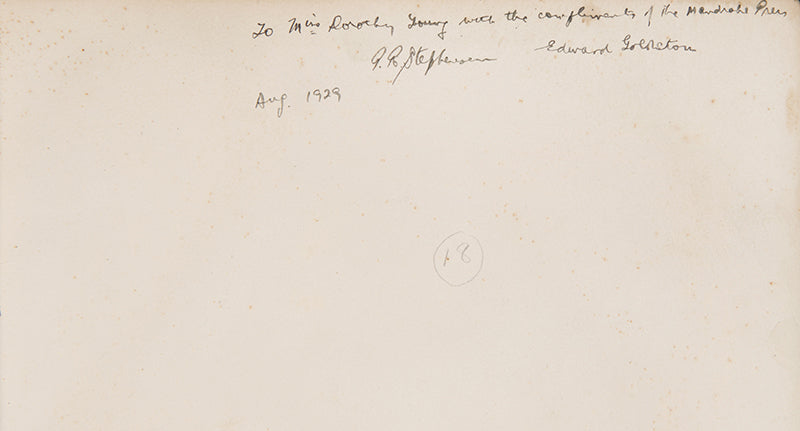 To Miss Dorothy Young with the compliments of the Mandrake Press
P. R. Stephensen Edward Goldston
Aug. 1929
18